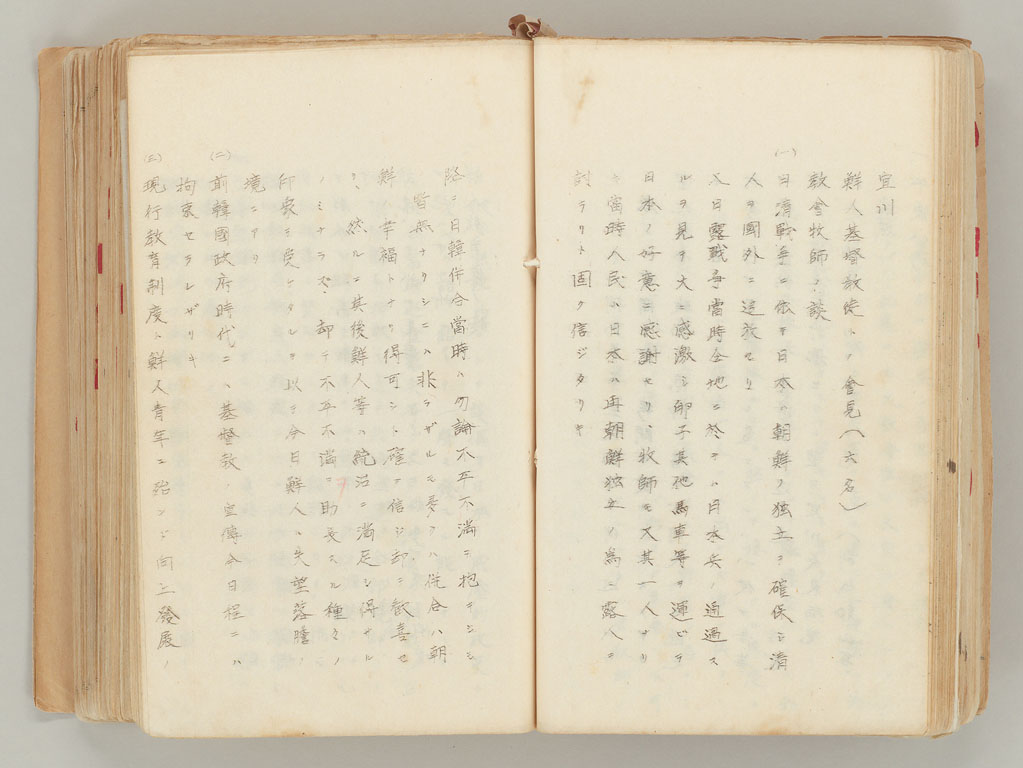 宣川
鮮人基督教徒トノ會見(六名)
教會牧師ノ談
(一)
日清戰爭ニ依テ日本ハ朝鮮ノ独立ヲ確保シ清
人ヲ國外ニ逆放セリ
又日露戰爭當時全地ニ於テハ日本兵ノ通過ス
ルヲ見テ大ニ感激シ卵子其他馬車等ヲ運ビテ
日本ノ好意ニ感謝セリ、牧師モ又其一人ナリ
キ當時人民ハ日本ハ再朝鮮独立ノ為ニ露人ヲ
討ラリト固ク信ジタリキ
降テ日韓併合當時ハ勿論不平不満ヲ抱キシ
者無ナリシニハ非ラザルモ多クハ併合ハ朝
鮮ノ幸福トナリ得可シト確ク信ジ却テ歓喜セ
シ、然ルニ其後鮮人等ハ統治ニ満足シ得ザル
ノミナラズ、却テ不平不満ヲ助長スル種々ノ
印象ヲ受ケタルヲ以テ今日鮮人ハ失望落膽ノ
境ニアリ
(二)
前韓國政府時代ニハ基督教ノ宣傳今日程ニハ
拘束セラレザリキ
(三)
現行教育制度ハ鮮人青年ニ殆ンド向上發展ノ